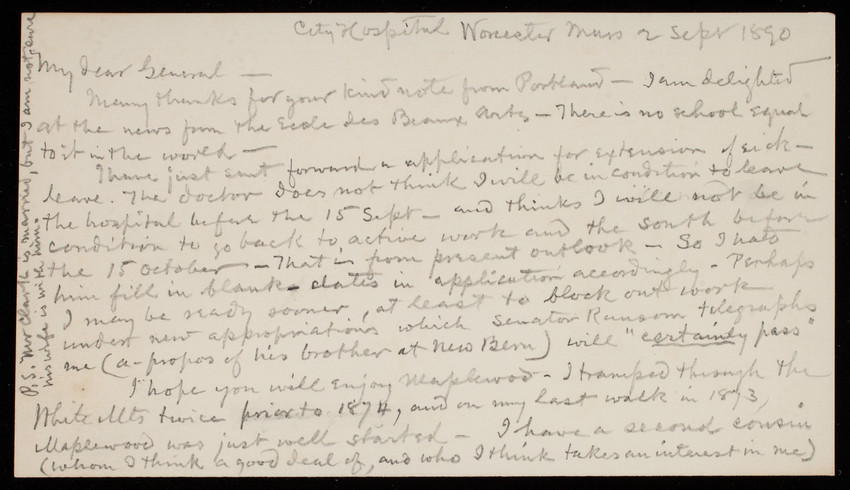 City Hospital Worcester Mass 2 Sept 1890
My dear General —
Many thanks for your kind note from Portland — I am delighted
at the news from the Ecole des Beaux Arts — There is no school equal
to it in the world —
I have just sent forward a application for extension of sick-
leave. The doctor does not think I will be in condition to leave
the hospital before the 15 Sept — and thinks I will not be in
condition to go back to active work and the South before
the 15 October — That is from present outlook — So I had
him fill in blank-dates in application accordingly — Perhaps
I may be ready sooner, at least to block out work
under new appropriations which Senator Ransom telegraphs
me (a-propos of his brother at New Bern) will "certainly pass"
I hope you will enjoy Maplewood — I tramped through the
White Mts twice prior to 1874, and on my last walk in 1873,
Maplewood was just well started — I have a second cousin
(whom I think a good deal of, and who I think takes an interest in me)
P.S. Mr Clark is married, but I am not sure
his wife is with him.